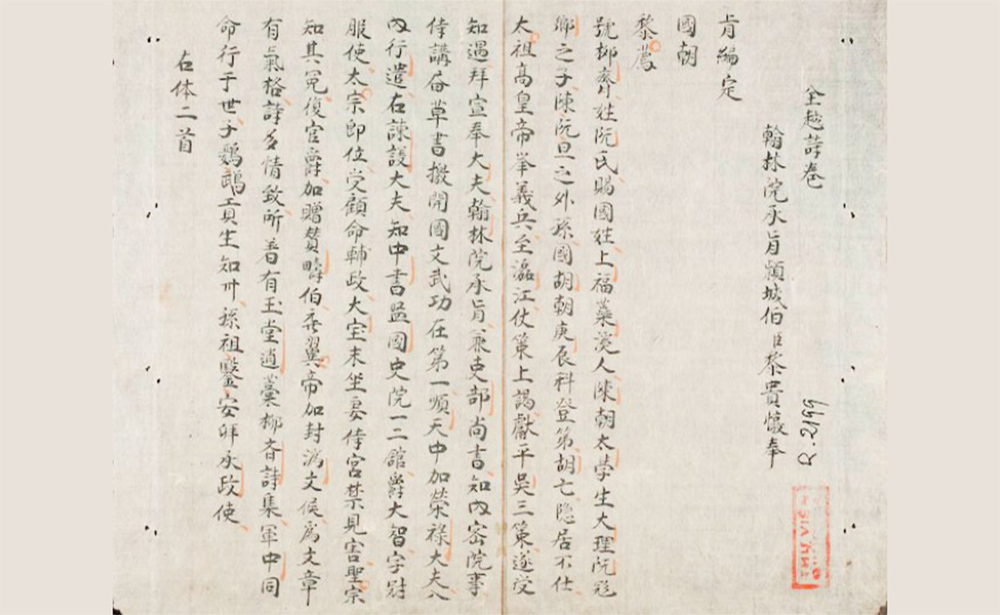 全越詩卷
翰林院承旨頴城伯臣黎貴惇奉
R.2199
THƯ VIỆ
旨編定
國朝
黎廌
號抑齊姓阮氏賜國姓上福蘂溪人陳朝太學生大理阮飛
卿之子陳阮旦之外孫國胡朝庚辰科登第胡亡隐居不仕
太祖高皇帝峯義兵至瀘江仗策上謁獻平吳三策遂受
知過拜宣奉大夫翰林院承旨兼吏部尚書知內密院事
侍講昏草書檄開國文武功在第一順天中加榮禄大夫入
內行遣右諫議大夫知中書監國史院一二舘爵大智字冠
服使太宗即位受顧命輔政大宝末坐妾侍宮禁見害聖宗
知其冤復官爵加贈賛疇伯丕翼帝加封济文侯為文章
有氣格詩多情致所著有玉堂逍藁抑斎詩集軍中同
命行于世子鸚鵡貢生知州孫祖鑒安邦承政使
古体二首